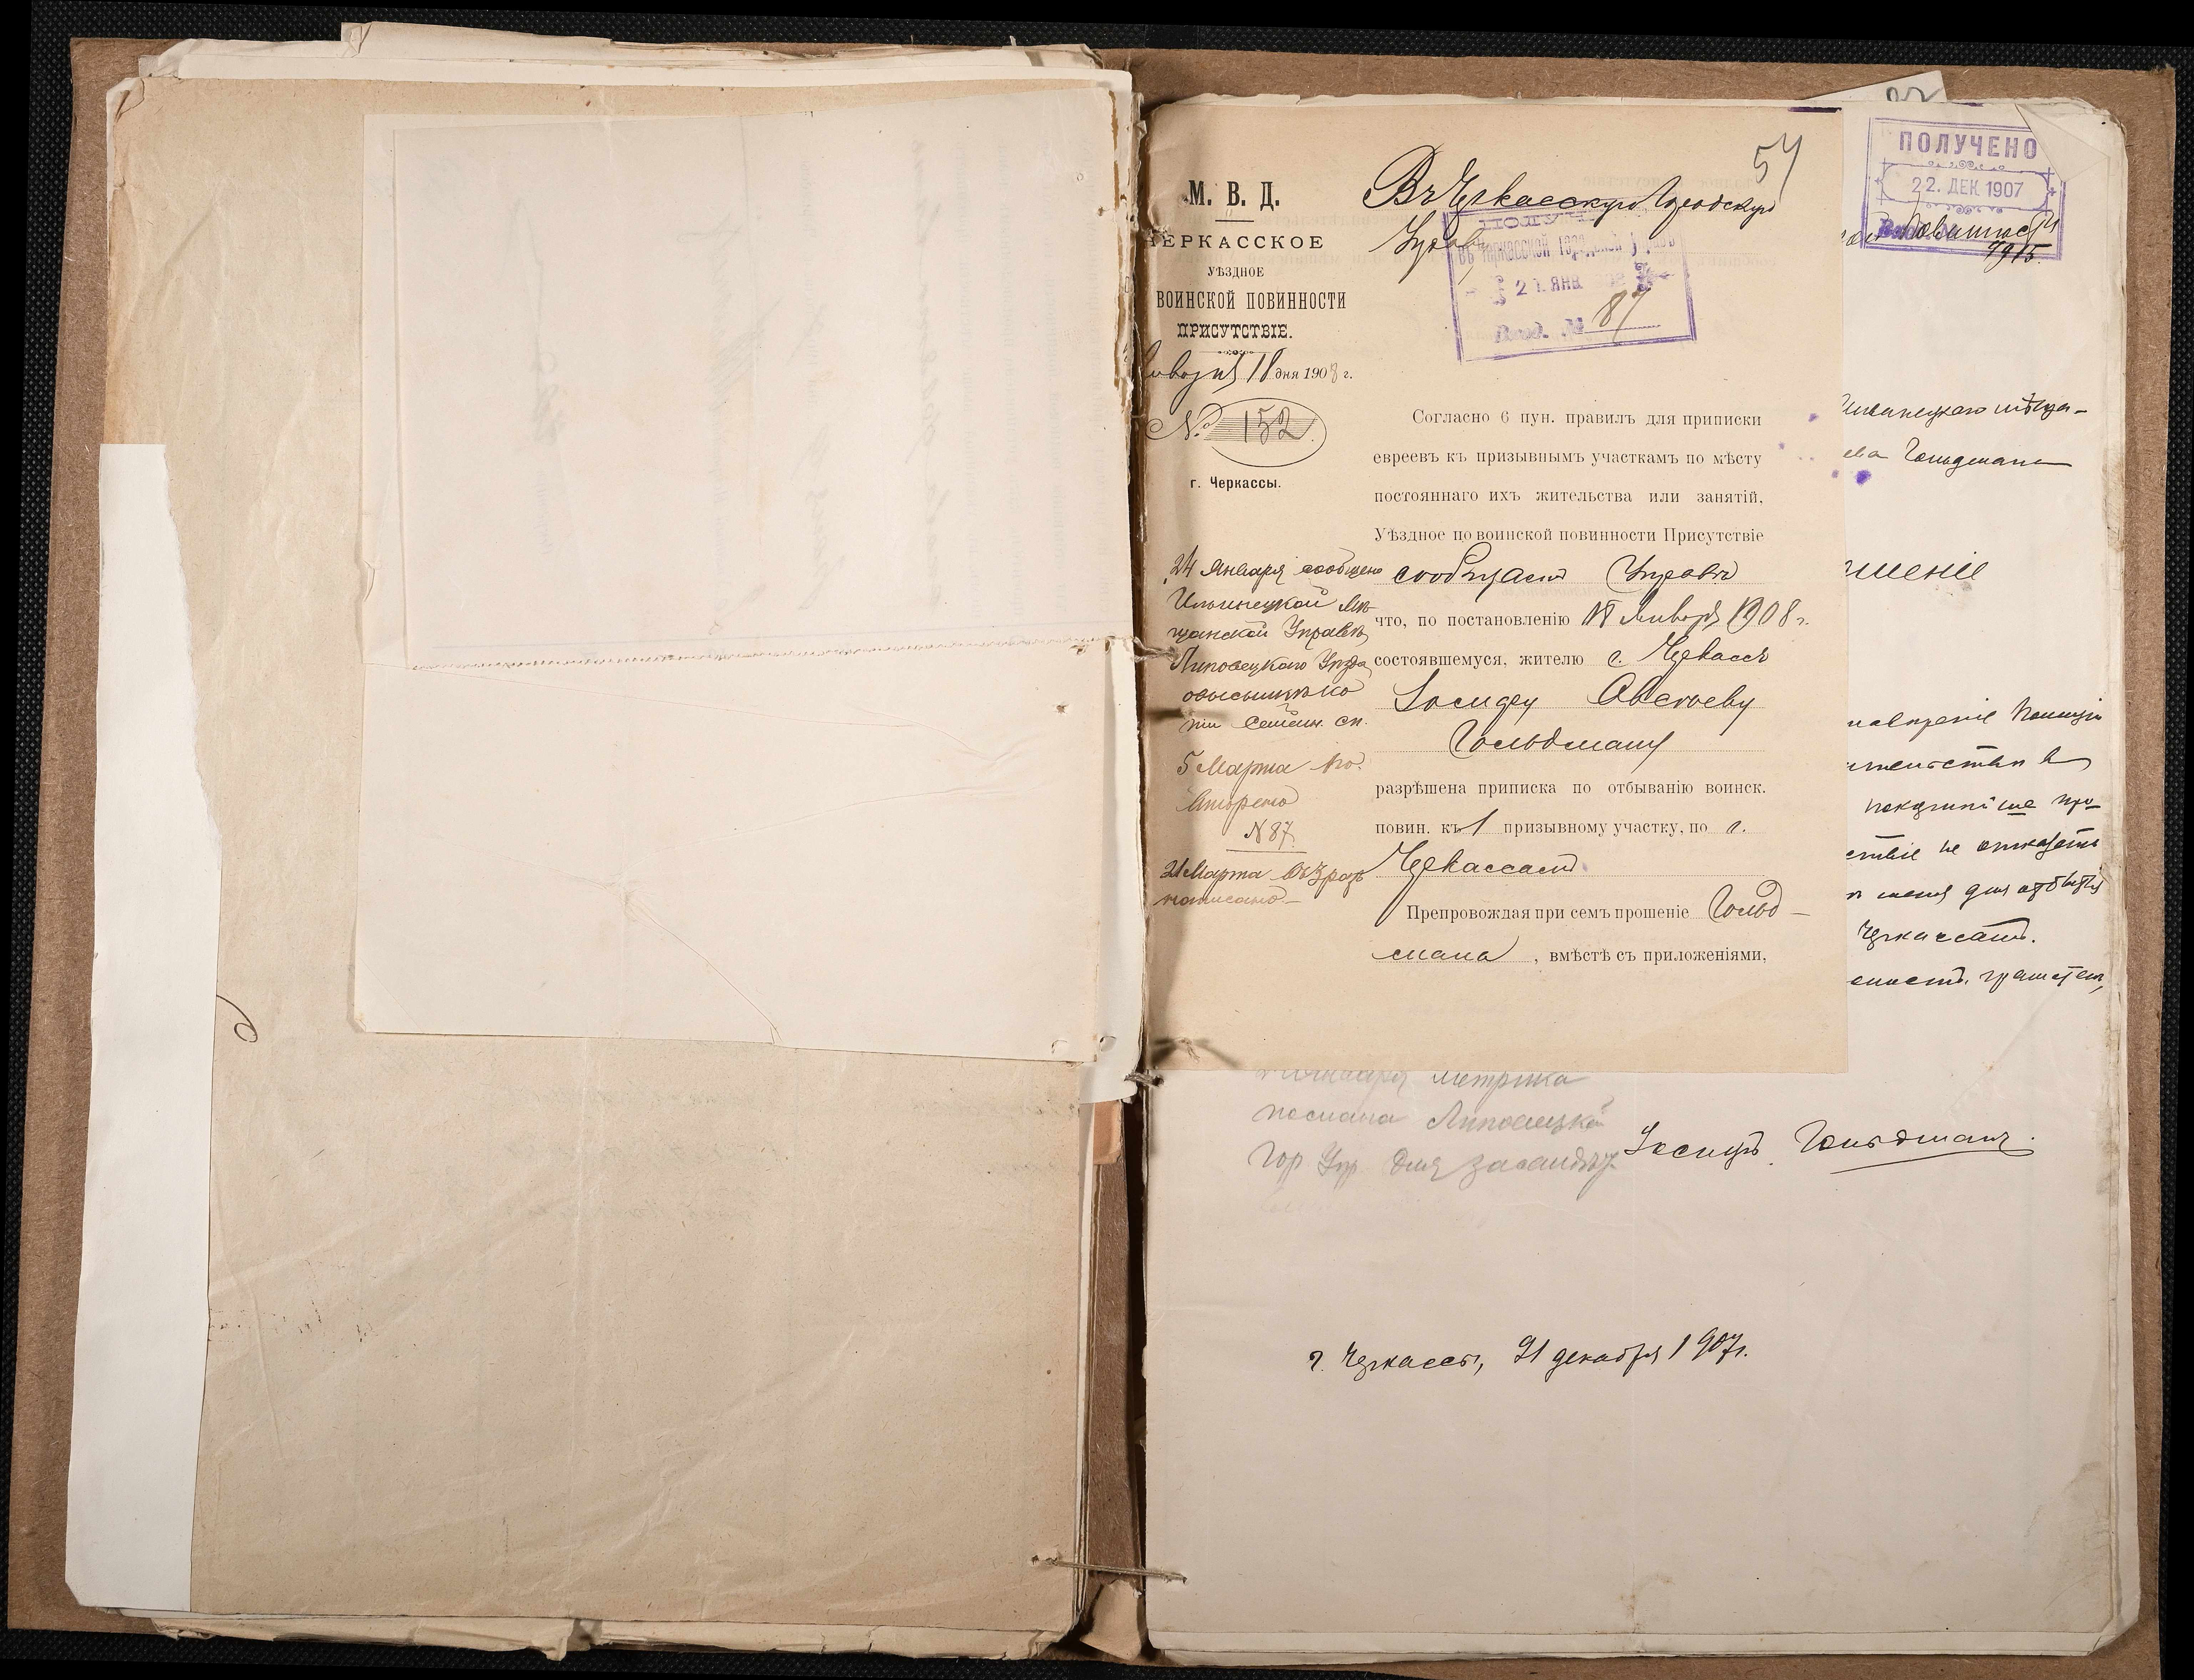 57
М. В. Д.
ЧЕРКАССКОЕ
УѢЗДНОЕ
ВОИНСКОЙ ПОВИННОСТИ
ПРИСУТСТВІЕ.
Января 18 дня 1908 г.
№ 152.
г. Черкассы.
Въ Черкасскую Городскую
Управу
ПОЛУЧ
въ Черкасской Городской Управѣ
21 ЯНВ
Вход. № 87
Согласно 6 пун. правилъ для приписки
евреевъ къ призывнымъ участкамъ по мѣсту
постояннаго ихъ жительства или занятій,
Уѣздное по воинской повинности Присутствіе
сообщаетъ Управѣ
что, по постановленію 18 Января 1908 г.
состоявшемуся, жителю г. Черкассъ
Іосифу
Гольдману
разрѣшена приписка по отбыванію воинск.
повин. къ 1 призывному участку, по г.
Черкассамъ
Препровождая при семъ прошеніе Гольд-
мана, вмѣстѣ съ приложеніями,
24 Января сообщено
Ильинецкой Мѣ-
щанской Управѣ
Липовецкаго Уѣзда
о высылкѣ ко-
піи Семейн. сп.
5 Марта по-
вторено
N 87.
21 Марта
написано-
ПОЛУЧЕНО
22. ДЕК. 1907
повинности
9915
Гольдмана
шеніе
Черкассамъ.
Января метрика
послана Липовецкой
Гор Упр. для
Іосифъ Гольдманъ.
г. Черкассы, 21 декабря 1907 г.